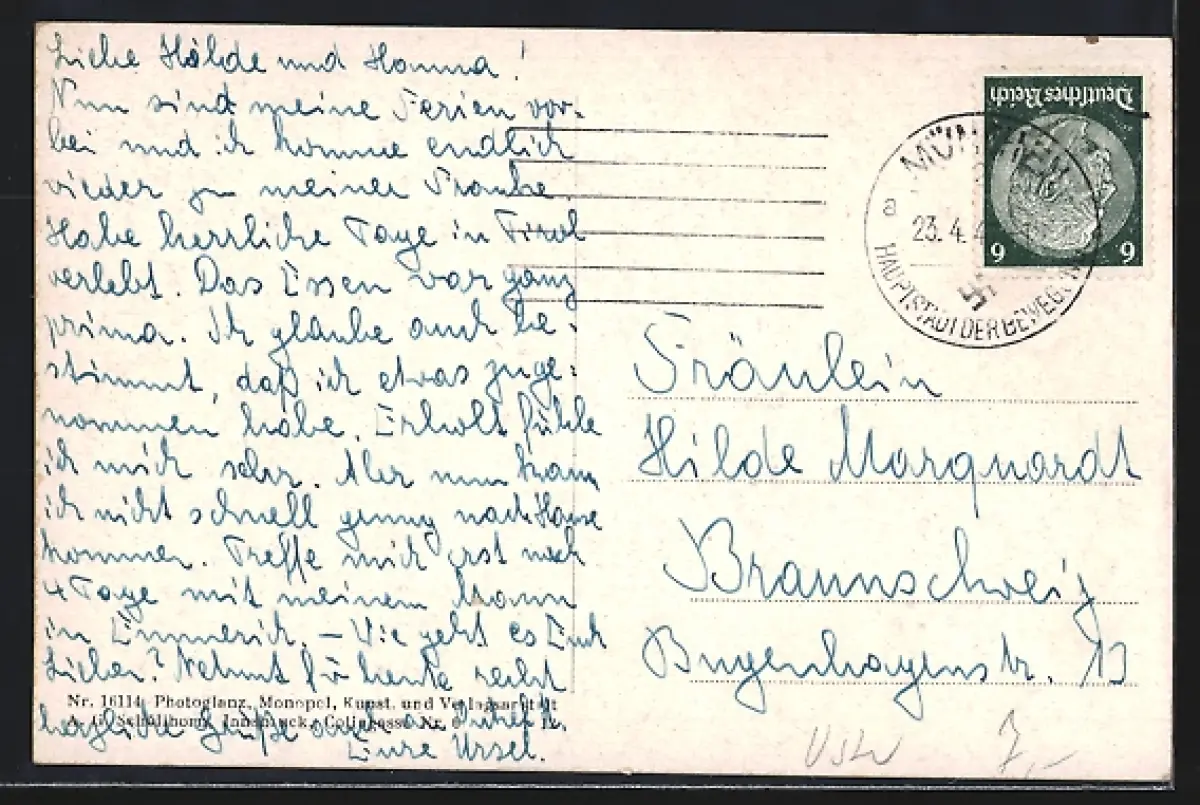 Liebe Hilde und Hanna!
Nun sind meine Ferien vor-
bei und ich komme endlich
wieder zu meiner Franke.
Habe herrliche Tage in Tirol
verlebt. Das Essen war ganz
prima. Ich glaube auch be-
stimmt, daß ich etwas zuge-
nommen habe. Erholt fühle
ich mich sehr. Aber nun kann
ich nicht schnell genug nach Hause
kommen. Treffe mich erst noch
4 Tage mit meinem Mann
in Emmerich. – Wie geht es Euch
Lieben? Nehmt für heute recht
herzliche Grüße
Eure Ursel.
Nr. 16114 Photoglanz, Monopol, Kunst- und Verlagsanstalt
A. G. Schöllhorn, Innsbruck,
Deutsches Reich
6 6
MÜNCHEN
a
23.4.4
HAUPTSTADT DER BEWEGUNG
Fräulein
Hilde Marquardt
Braunschweig
Bugenhagenstr. 13
7,-